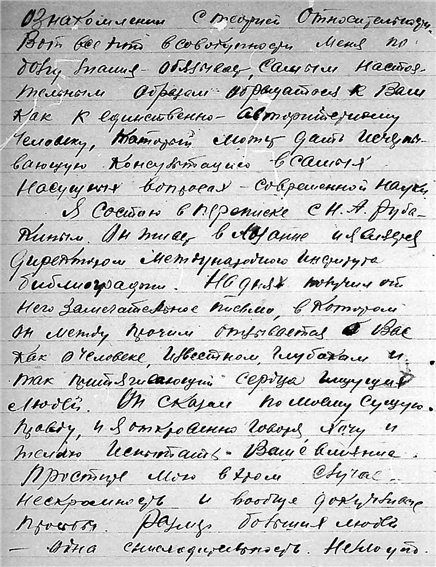 ознакомлении с теорией Относительности.
Вот все это в совокупности меня по
бозу знания - обязывает, самым настоя-
тельным образом обращаться к Вам
как к единственно-авторитетному
человеку, который может дать исчерпы-
вающую консультацию в самых
насущных вопросах - современной науки.
Я состою в переписке с Н. А. Руба-
киным. Он живет в Лозанне и является
директором Международного Института
библиографии. На днях получил от
него замечательное письмо, в котором
он между прочим отзывается о Вас
как о человеке, известном, глубоком и
так притягивающий сердца ищущих
людей. Он сказал по моему сущую
правду, и я откровенно говоря хочу и
желаю испытать Ваше влияние.
Простите мою в этом случае
нескромность и вообще
большия людей
- одна снисходительность.